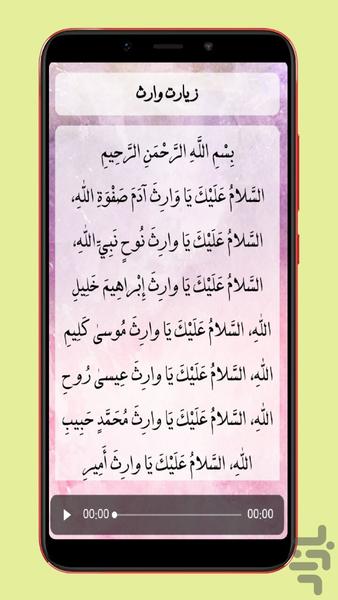 زیارت وارث
بِسْمِ اللَّهِ الرَّحْمَنِ الرَّحِيمِ
السَّلامُ عَلَيْكَ يَا وَارِثَ آدَمَ صَفْوَةِ اللّٰهِ،
السَّلامُ عَلَيْكَ يَا وارِثَ نُوحٍ نَبِيِّ اللّٰهِ،
السَّلامُ عَلَيْكَ يَا وارِثَ إِبْراهِيمَ خَلِيلِ
اللّٰهِ، السَّلامُ عَلَيْكَ يَا وارِثَ مُوسىٰ كَلِيمِ
اللّٰهِ، السَّلامُ عَلَيْكَ يَا وارِثَ عِيسىٰ رُوحِ
اللّٰهِ، السَّلامُ عَلَيْكَ يَا وارِثَ مُحَمَّدٍ حَبِيبِ
اللّٰهِ، السَّلامُ عَلَيْكَ يَا وارِثَ أَمِيرِ
00:00 00:00
بازار